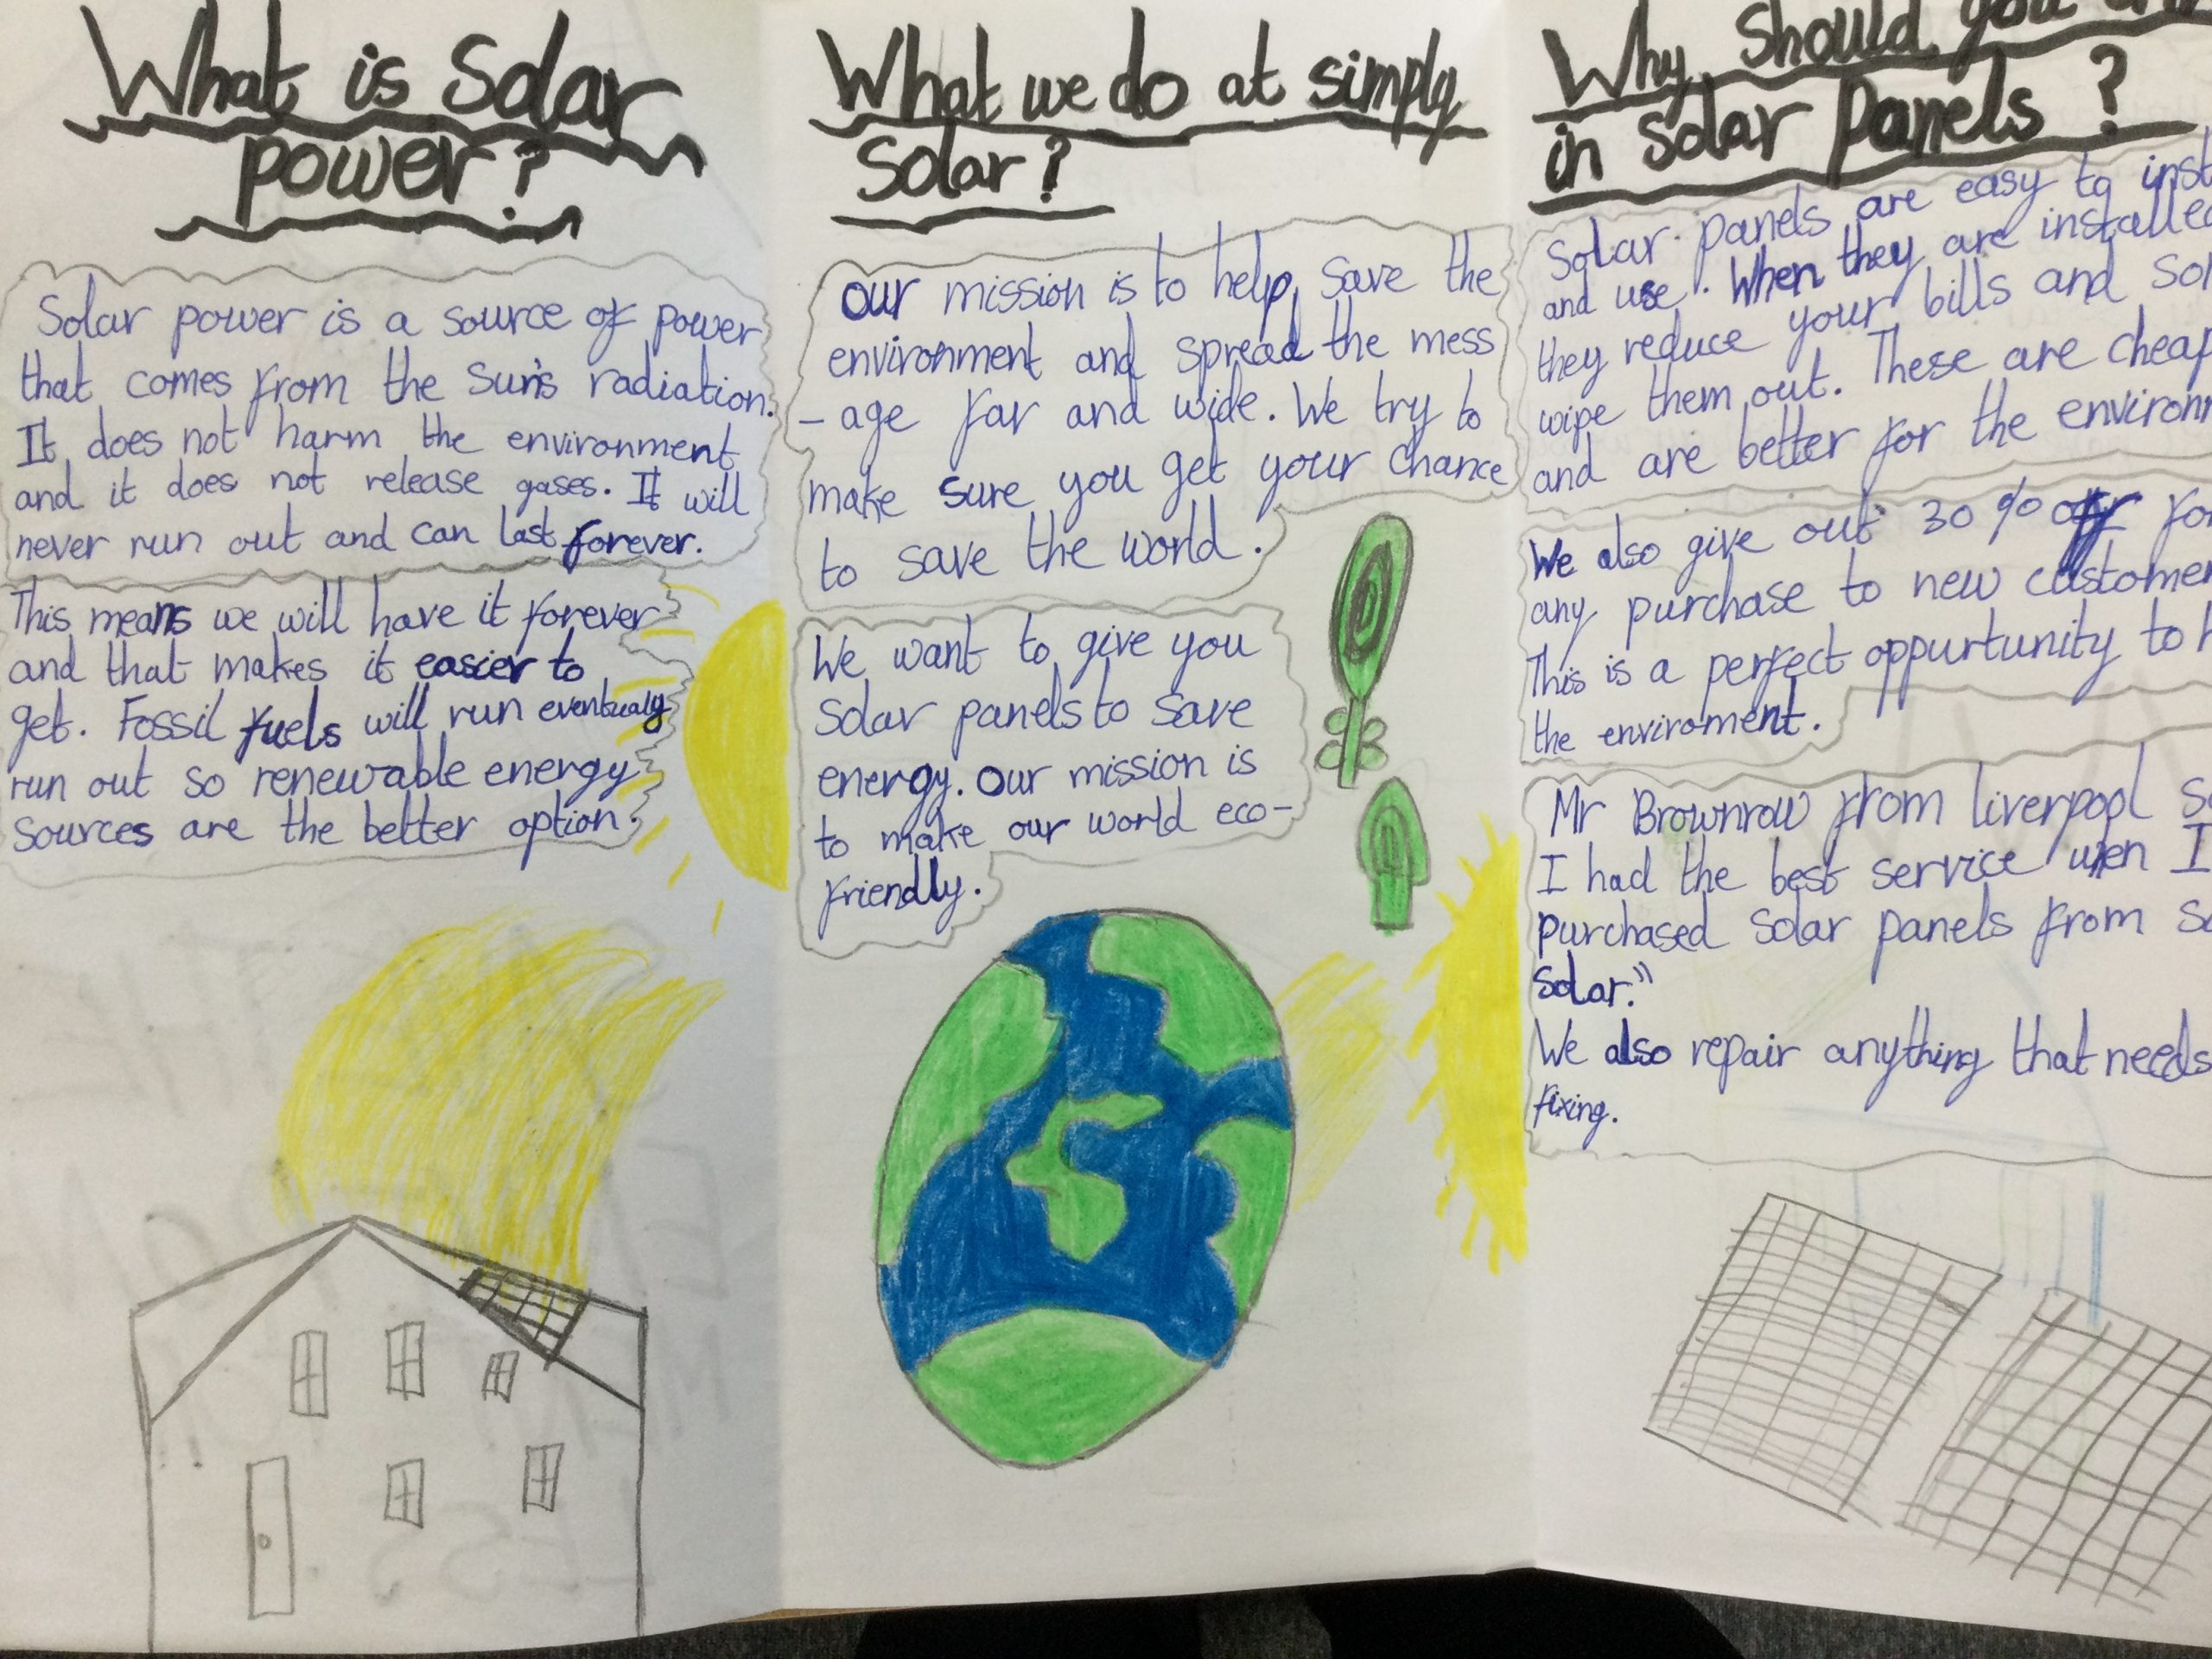 What is Solar
power?
Solar power is a source of power
that comes from the Sun's radiation.
It does not harm the environment
and it does not release gases. It will
never run out and can last forever.
This means we will have it forever
and that makes it easier to
get. Fossil fuels will run eventualy
run out so renewable energy
sources are the better option.
What we do at simply
Solar?
our mission is to help save the
environment and spread the mess
- age far and wide. We try to
make sure you get your chance
to save the world.
We want to give you
solar panels to save
energy. Our mission is
to make our world eco-
friendly.
Why should you
in solar panels?
Solar panels are easy to
and use. When they are
they reduce your bills and
wipe them out. These are
and are better for the
We also give out 30% off
any purchase to new
This is a perfect oppurtunity to
the enviroment.
Mr Brownrow from liverpool
I had the best service when I
purchased solar panels from
solar."
We also repair anything that needs
fixing.